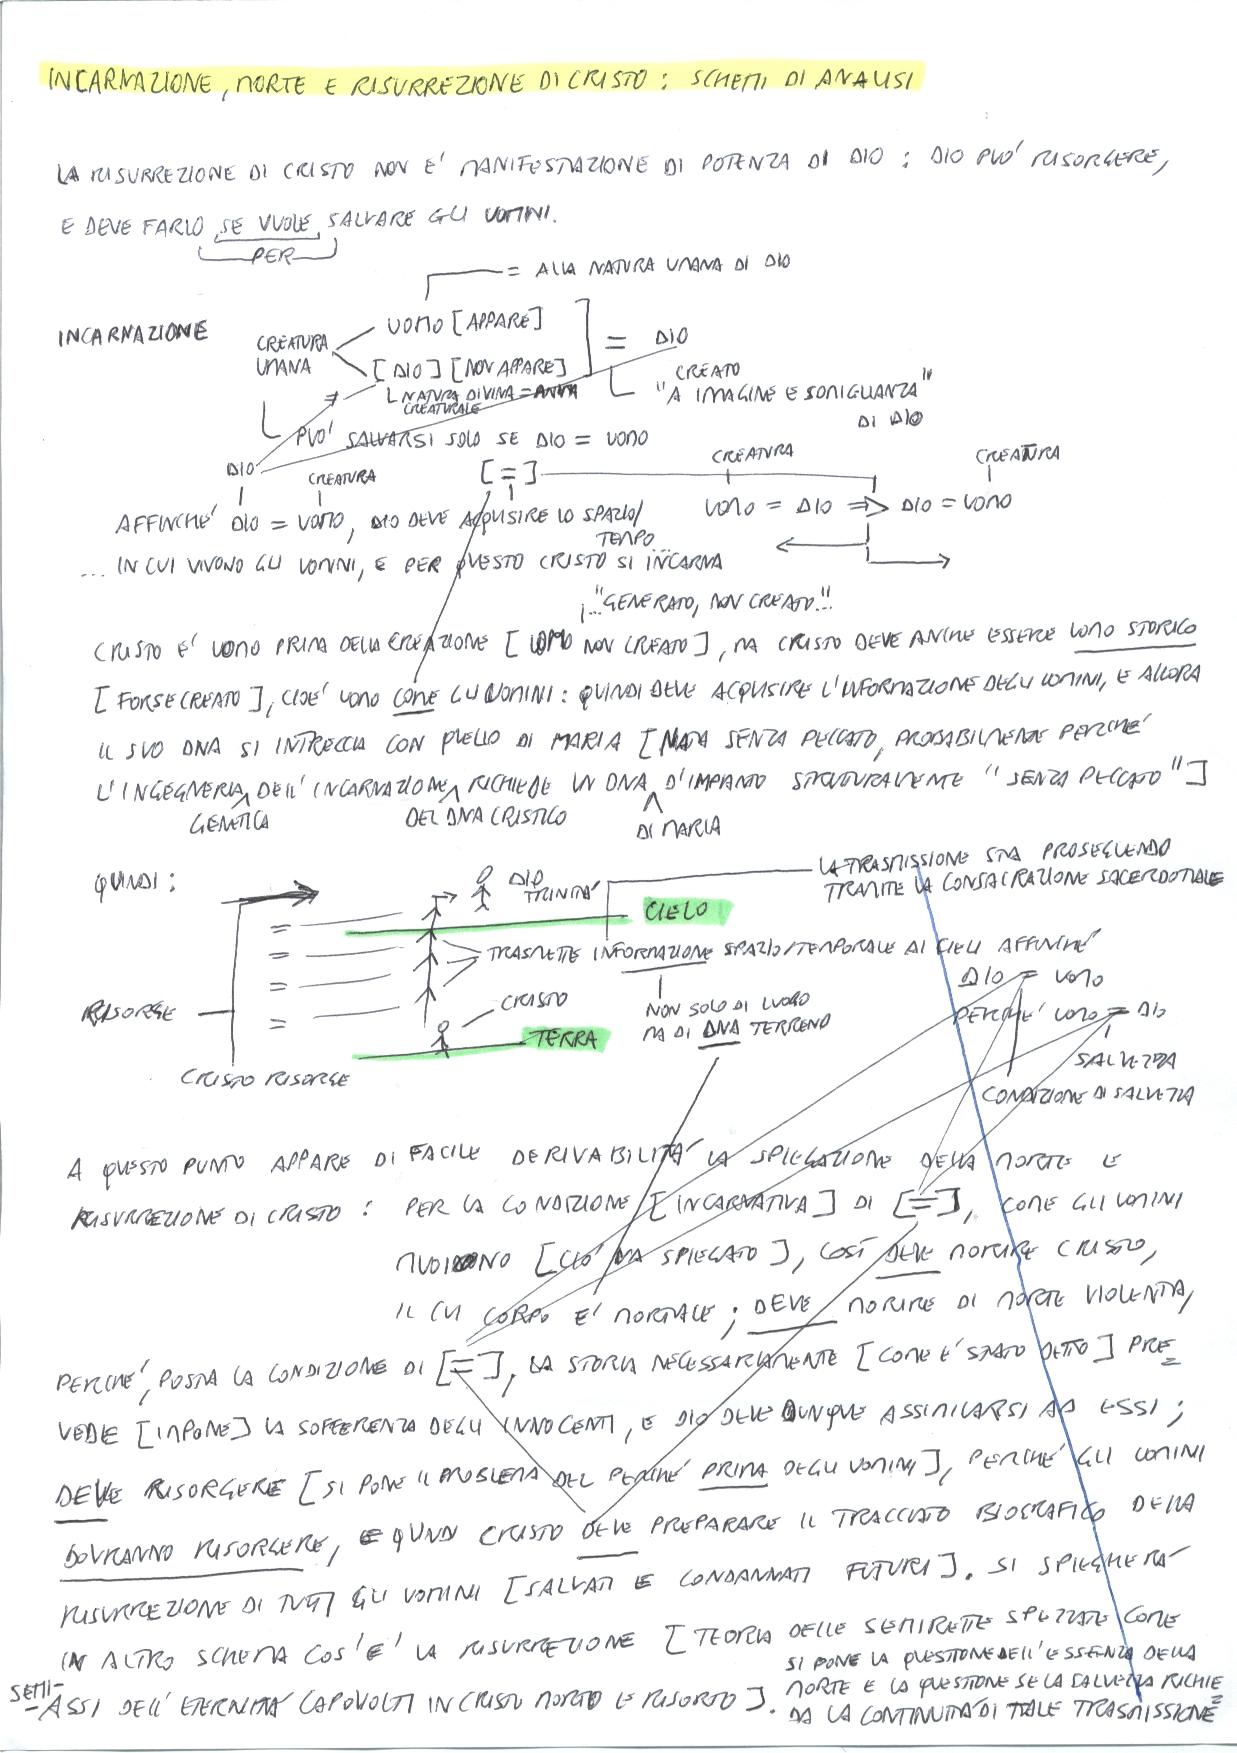 INCARNAZIONE, MORTE E RISURREZIONE DI CRISTO: SCHEMI DI ANALISI
LA RISURREZIONE DI CRISTO NON E' MANIFESTAZIONE DI POTENZA DI DIO: DIO PUO' RISORGERE,
E DEVE FARLO, SE VUOLE, SALVARE GLI UOMINI.
PER
= ALLA NATURA UMANA DI DIO
INCARNAZIONE
CREATURA
UMANA
UOMO [APPARE]
[DIO] [NON APPARE]
NATURA DIVINA = ANIMA
CREATURALE
= DIO
CREATO
"A IMAGINE E SOMIGLIANZA"
DI DIO
PUO' SALVARSI SOLO SE DIO = UOMO
DIO
CREATURA
[=]
CREATURA
CREATURA
AFFINCHE' DIO = UOMO, DIO DEVE ACQUISIRE LO SPAZIO/
TEMPO...
UOMO = DIO => DIO = UOMO
... IN CUI VIVONO GLI UOMINI, E PER QUESTO CRISTO SI INCARNA
..."GENERATO, NON CREATO"...
CRISTO E' UOMO PRIMA DELLA CREAZIONE [UOMO NON CREATO], MA CRISTO DEVE ANCHE ESSERE UOMO STORICO
[FORSE CREATO], CIOE' UOMO COME GLI UOMINI: QUINDI DEVE ACQUISIRE L'INFORMAZIONE DEGLI UOMINI, E ALLORA
IL SUO DNA SI INTRECCIA CON QUELLO DI MARIA [NATA SENZA PECCATO, PROBABILMENTE PERCHE'
L'INGEGNERIA DELL'INCARNAZIONE RICHIEDE UN DNA D'IMPIANTO STRUTTURALMENTE "SENZA PECCATO"]
GENETICA
DEL DNA CRISTICO
DI MARIA
QUINDI:
DIO
TRINITA'
LA TRASMISSIONE STA PROSEGUENDO
TRAMITE LA CONSACRAZIONE SACERDOTALE
CIELO
TRASMETTE INFORMAZIONE SPAZIO/TEMPORALE AI CIELI AFFINCHE'
DIO = UOMO
PERCHE' UOMO = DIO
SALVEZZA
CONDIZIONE DI SALVEZZA
CRISTO
NON SOLO DI LUOGO
MA DI DNA TERRENO
RISORGE
TERRA
CRISTO RISORGE
A QUESTO PUNTO APPARE DI FACILE DERIVABILITA' LA SPIEGAZIONE DELLA MORTE E
RISURREZIONE DI CRISTO: PER LA CONDIZIONE [INCARNATIVA] DI [=], COME GLI UOMINI
MUOIONO [CIO' VA SPIEGATO], COSI' DEVE MORIRE CRISTO,
IL CUI CORPO E' MORTALE; DEVE MORIRE DI MORTE VIOLENTA,
PERCHE', POSTA LA CONDIZIONE DI [=], LA STORIA NECESSARIAMENTE [COME E' STATO DETTO] PRE=
VEDE [IMPONE] LA SOFFERENZA DEGLI INNOCENTI, E DIO DEVE DUNQUE ASSIMILARSI AD ESSI;
DEVE RISORGERE [SI PONE IL PROBLEMA DEL PERCHE' PRIMA DEGLI UOMINI], PERCHE' GLI UOMINI
DOVRANNO RISORGERE, E QUINDI CRISTO DEVE PREPARARE IL TRACCIATO BIOGRAFICO DELLA
RISURREZIONE DI TUTTI GLI UOMINI [SALVATI E CONDANNATI FUTURI]. SI SPIEGHERA'
IN ALTRO SCHEMA COS'E' LA RISURREZIONE [TEORIA DELLE SEMIRETTE SPEZZATE COME
SEMI-
ASSI DELL'ETERNITA' CAPOVOLTI IN CRISTO MORTO E RISORTO].
SI PONE LA QUESTIONE DELL'ESSENZA DELLA
MORTE E LA QUESTIONE SE LA SALVEZZA RICHIE=
DA LA CONTINUITA' DI TALE TRASMISSIONE